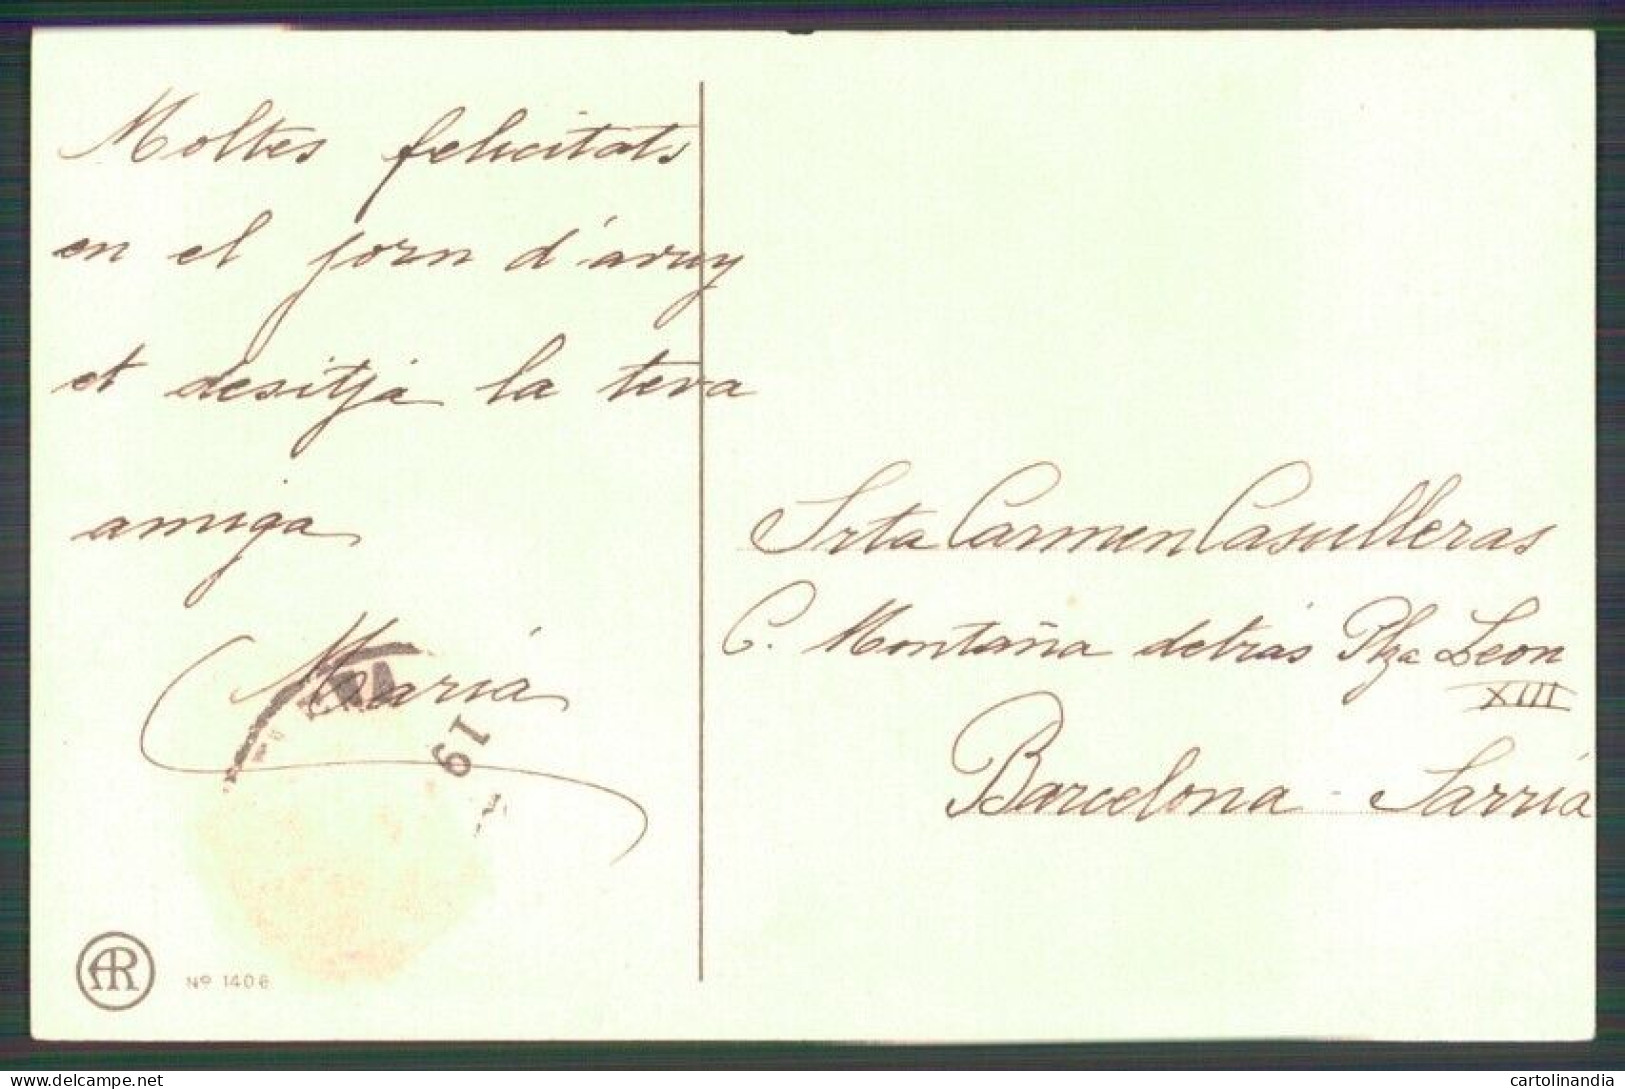 Moltes felicitats
en el jorn d'avuy
et desitja la teva
amiga
María
19
AR
Nº 1406
Srta Carmen Casulleras
C. Montaña detrás Plza Leon
XIII
Barcelona - Sarriá
cartolinandia.delcampe.net
cartolinandia